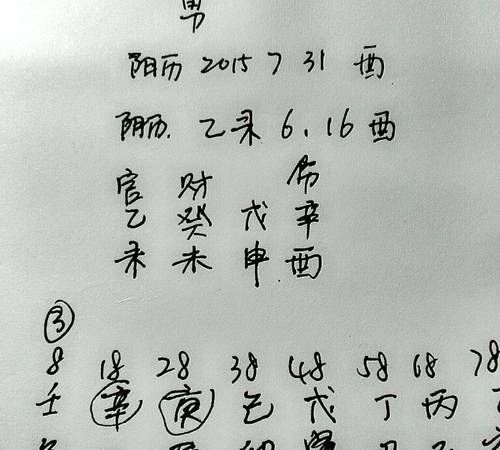 男
阳历 2015 7 31 酉
阴历. 乙未 6.16 酉
官 财 伤
乙 癸 戊 辛
未 未 申 酉
③
8 18 28 38 48 58 68 78
壬 辛 庚 己 戊 丁 丙